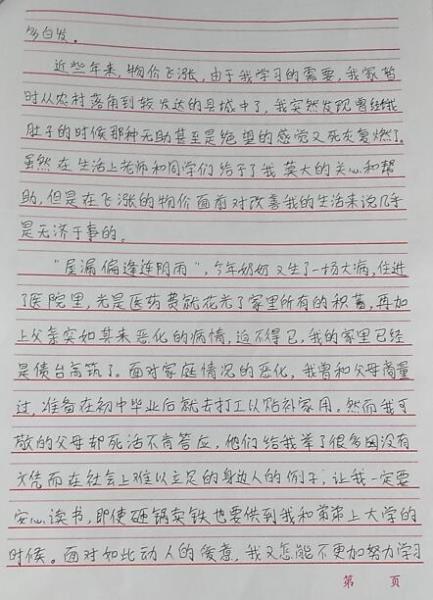 多白发。
近些年来,物价飞涨,由于我学习的需要,我家暂
时从农村落角到较发达的县城中了,我突然发现曾经饿
肚子的时候那种无助甚至是绝望的感觉又死灰复燃了。
虽然在生活上老师和同学们给予了我莫大的关心和帮
助,但是在飞涨的物价面前对改善我的生活来说几乎
是无济于事的。
"屋漏偏逢连阴雨",今年奶奶又生了一场大病,住进
了医院里,光是医药费就花光了家里所有的积蓄,再加
上父亲突如其来恶化的病情,迫不得已,我的家里已经
是债台高筑了。面对家庭情况的恶化,我曾和父母商量
过,准备在初中毕业后就去打工以贴补家用。然而我可
敬的父母却死活不肯答应,他们给我举了很多因没有
文凭而在社会上难以立足的身边人的例子,让我一定要
安心读书,即使砸锅卖铁也要供到我和弟弟上大学的
时候。面对如此动人的傻意,我又怎能不更加努力学习
第 页